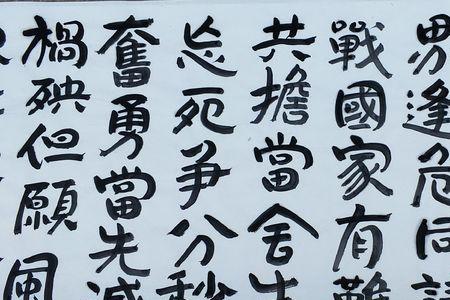 逢危同
戰國家有難
共擔當舍生
忘死爭分秒
奮勇當先
禍殃但願風